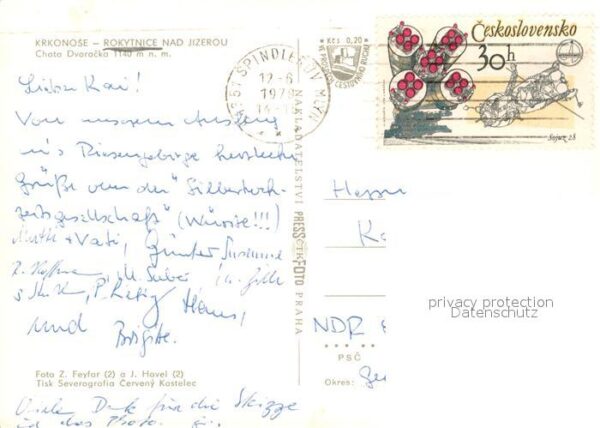 KRKONOŠE – ROKYTNICE NAD JIZEROU
Chata Dvoračka 1140 m n. m.
Lieber Kai!
Von unserem Ausflug
ins Riesengebirge herzliche
Grüße von der "Silberhoch-
zeitsgesellschaft" (Würste!!!)
Mutti + Vati, Günter Susanne
Hans,
und Brigitte.
Foto Z. Feyfar (2) a J. Havel (2)
Tisk Severografia Červený Kostelec
Vielen Dank für die Skizze
das Photo.
NAKLADATELSTVÍ PRESSFOTO PRAHA
ČTK
ŠPINDLERŮV MLÝN
12-6
1979
Kčs 0,20
Československo
30h
Sojuz 28
Herrn
Ka
NDR
PSČ
Okres:
privacy protection
Datenschutz